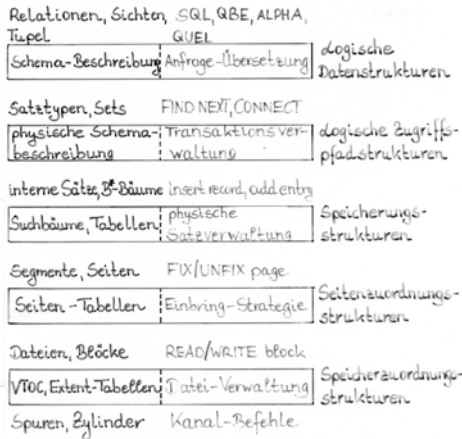 Relationen, Sichten, SQL, QBE, ALPHA,
Tupel QUEL
Schema-Beschreibung Anfrage-Übersetzung Logische
Datenstrukturen
Satztypen, Sets FIND NEXT, CONNECT
physische Schema- Transaktionsver- Logische Zugriffs-
beschreibung waltung pfadstrukturen
interne Sätze, B*-Bäume insert record, add entry
Suchbäume, Tabellen physische Speicherungs-
Satzverwaltung strukturen
Segmente, Seiten FIX/UNFIX page
Seiten-Tabellen Einbring-Strategie Seitenzuordnungs-
strukturen
Dateien, Blöcke READ/WRITE block
VTOC, Extent-Tabellen Datei-Verwaltung Speicherzuordnungs-
strukturen
Spuren, Zylinder Kanal-Befehle